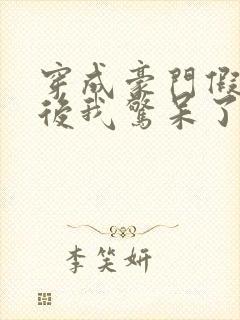 穿成豪門假
後我驚呆了
李笑妍